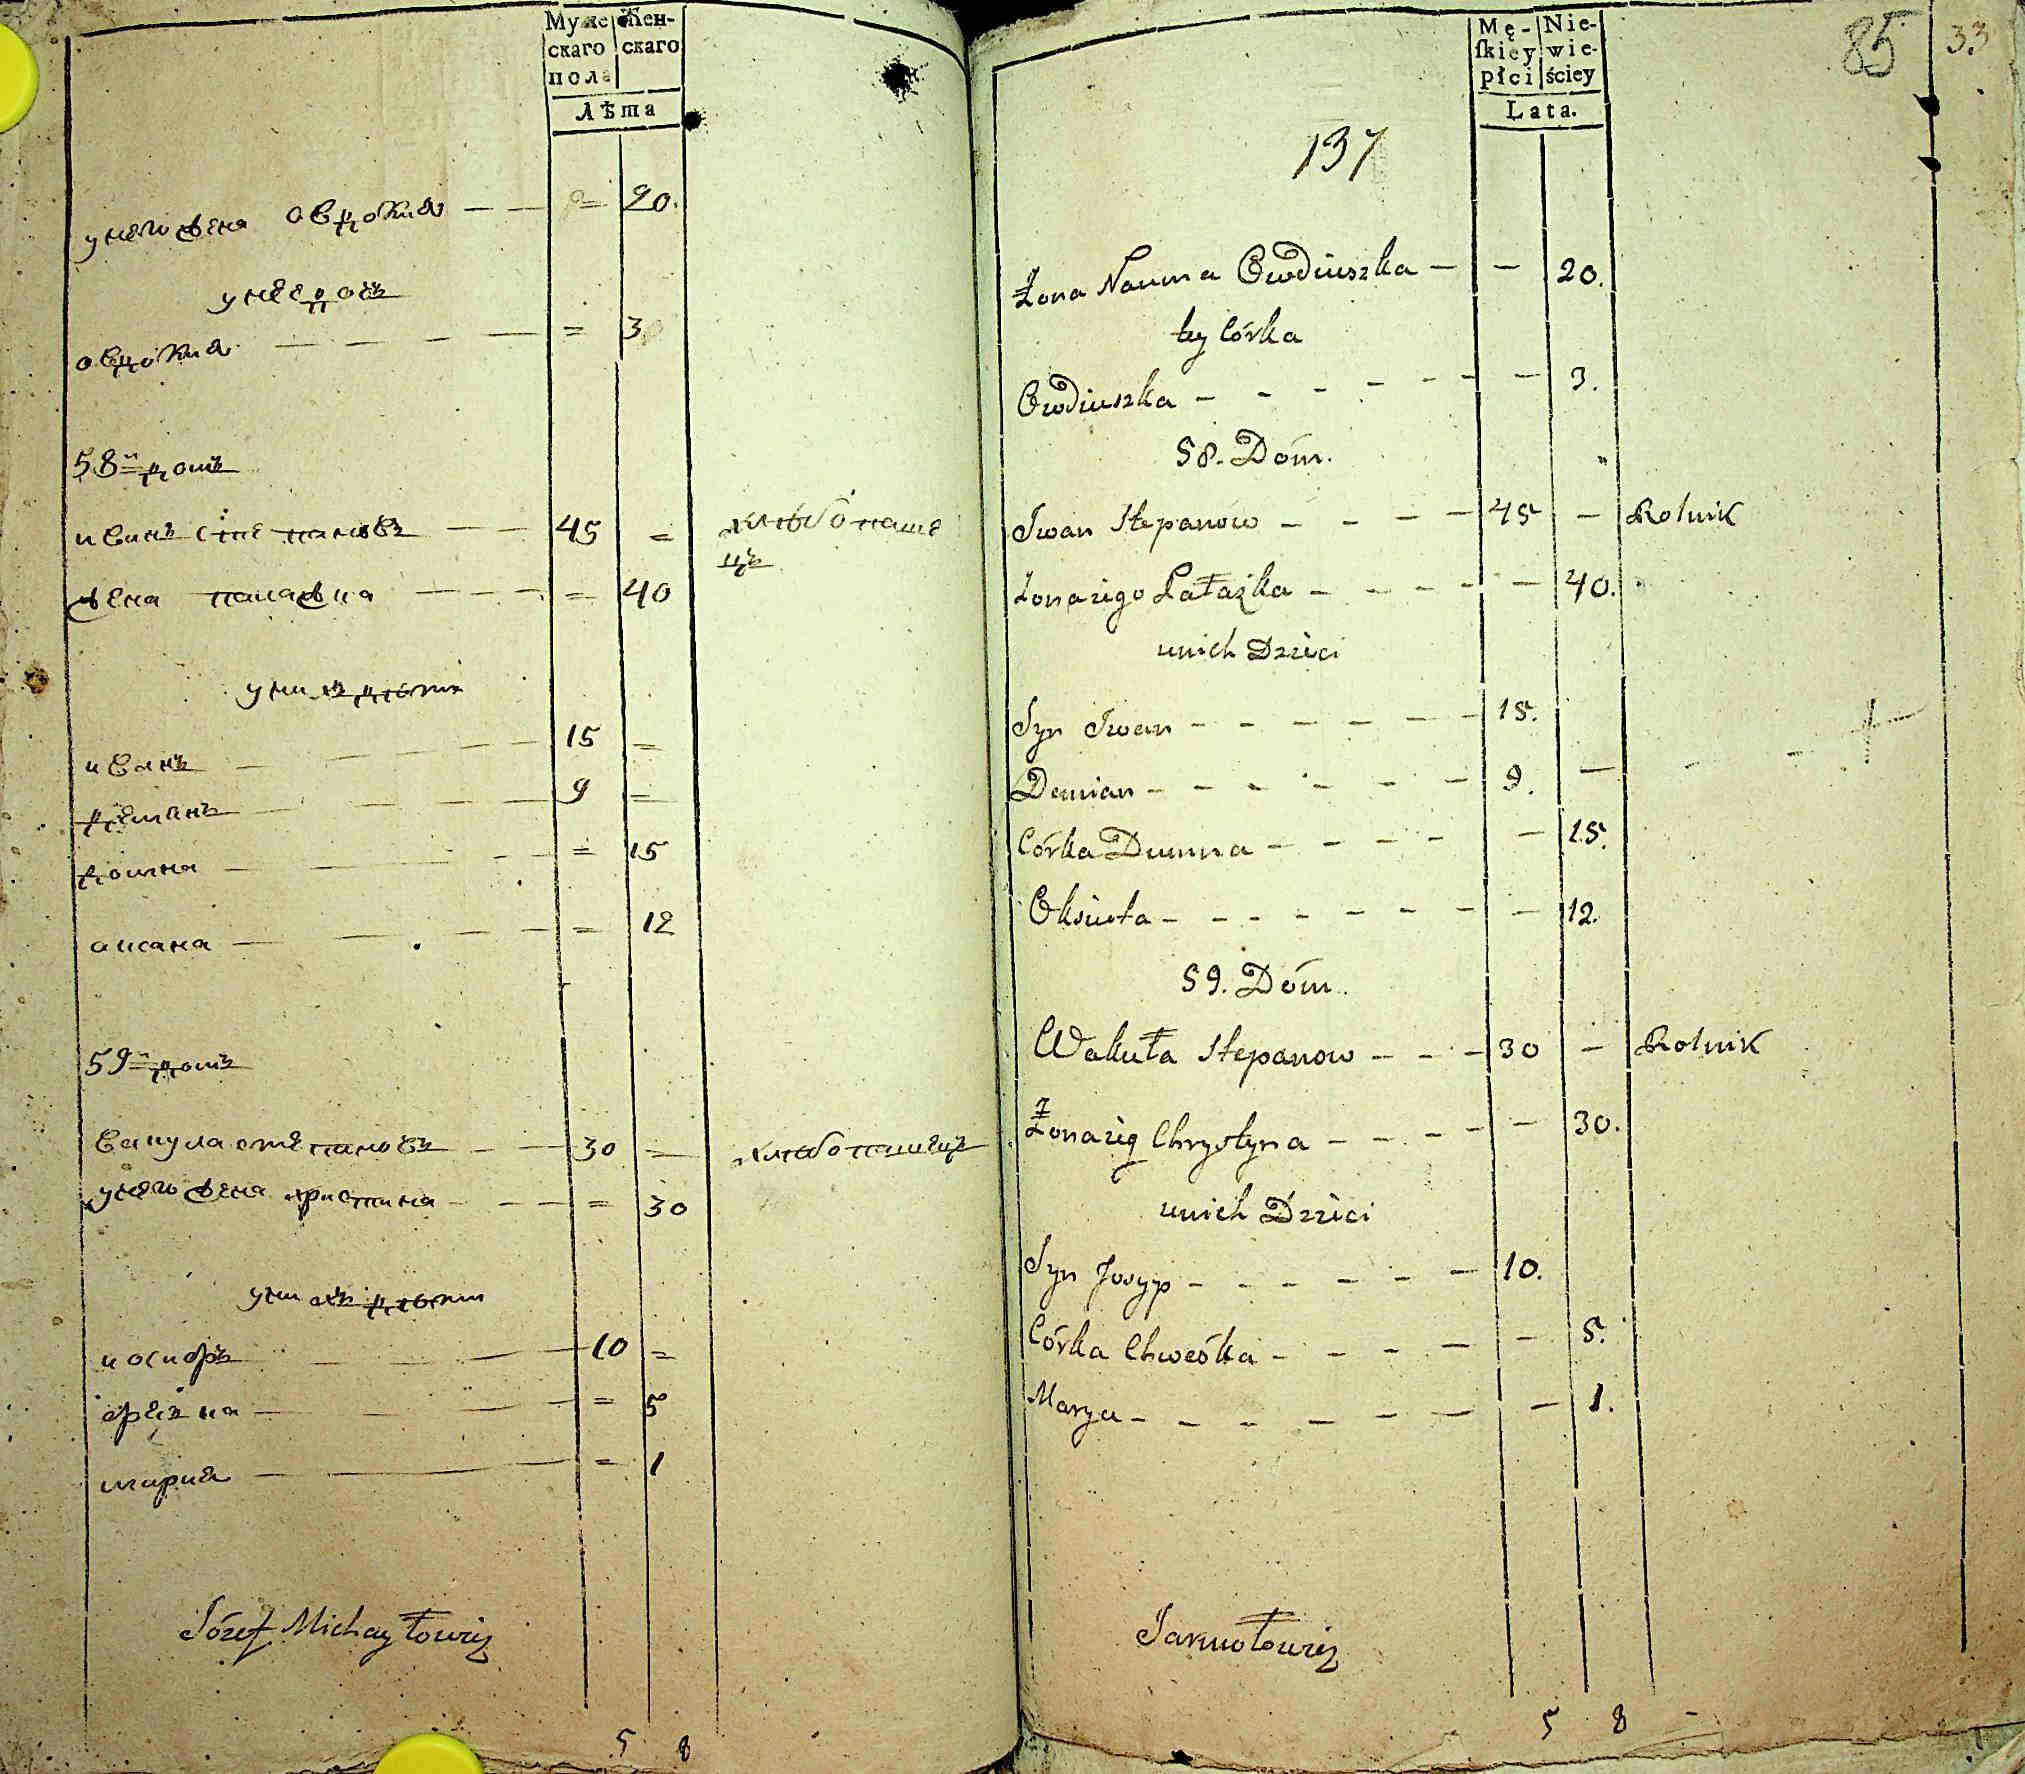 Мужескаго пола
Женскаго
Лѣта
унего жена овдокия — — = 20.
унее дочь
овдокия — — — — = 3
58й домъ
иванъ степановъ — — 45 = хлебопаше
цъ
жена палажка — — — = 40
уних дѣти
иванъ — — — — 15 =
деманъ — — — — 9 =
домна — — — — = 15
аксана — — — — = 12
59й домъ
вакула степановъ — — 30 = хлебопашецъ
унего жена христина — — — = 30
уних дѣти
иосифъ — — — 10 =
фескa — — — = 5
мария — — — = 1
Józef Michayłowicz
5 8
Mę-skiey płci
Nie-wieściey
Lata.
85
33
137
Żona Nauma Owdiuszka — — 20.
tey Córka
Owdiuszka — — — — — — — 3.
58. Dóm.
Iwan Stepanow — — — — 45 — Rolnik
Żona iego Pałażka — — — — — 40.
u nich Dzieci
Syn Iwan — — — — — — 15.
Demian — — — — — — 9. —
Córka Dumna — — — — — 15.
Oksiuta — — — — — — — — 12.
59. Dóm.
Wakuła Stepanow — — — 30 — Rolnik
Żona ieg Chrystyna — — — — — 30.
u nich Dzieci
Syn Josyp — — — — — — 10.
Córka Chweśka — — — — — 5.
Marya — — — — — — — 1.
Jarmołowicz
5 8 -